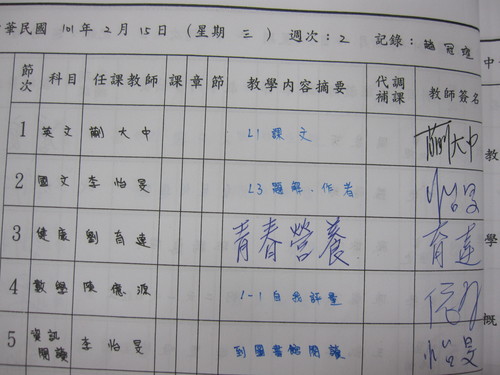 華民國 101年 2月 15日 (星期 三) 週次：2 記錄：趙冠
節次 科目 任課教師 課 章 節 教學內容摘要 代調補課 教師簽名
1 英文 蒯大中 L1 課文 蒯大中
2 國文 李怡旻 L3 題解、作者 怡旻
3 健康 劉育達 青春營養 育達
4 數學 陳億源 1-1 自我評量
5 資訊閱讀 李怡旻 到圖書館閱讀 怡旻
中
教
學
既